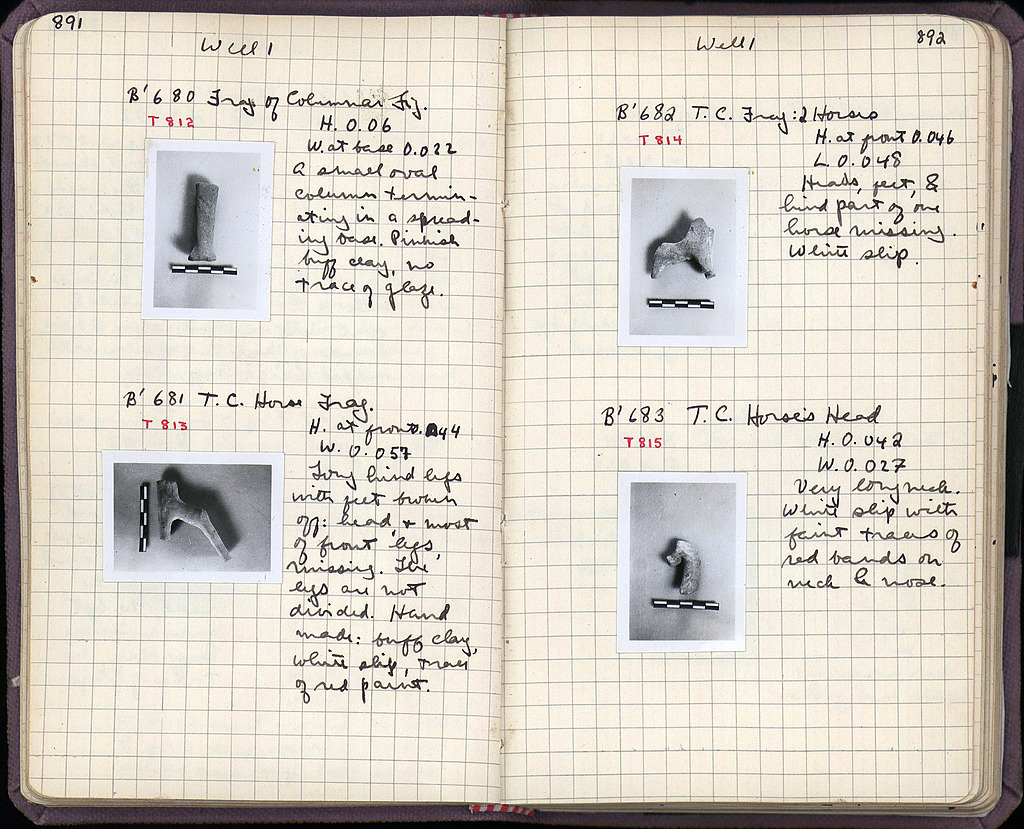 891
Well 1
B' 680 Frag of Columnar Fig.
T 812
H. 0.06
W. at base 0.022
A small oval
column termin-
ating in a spread-
ing base. Pinkish
buff clay, no
trace of glaze.
B' 681 T.C. Horse Frag.
T 813
H. at front 0.044
W. 0.057
Long hind legs
with feet broken
off: head, & most
of front legs,
missing. The
legs are not
divided. Hand
made: buff clay,
white slip, traces
of red paint.
892
Well 1
B' 682 T.C. Frag: 2 Horses
T 814
H. at front 0.046
L. 0.048
Heads, feet, &
hind part of one
horse missing.
White slip.
B' 683 T.C. Horse's Head
T 815
H. 0.042
W. 0.027
Very long neck.
White slip with
faint traces of
red bands on
neck & nose.